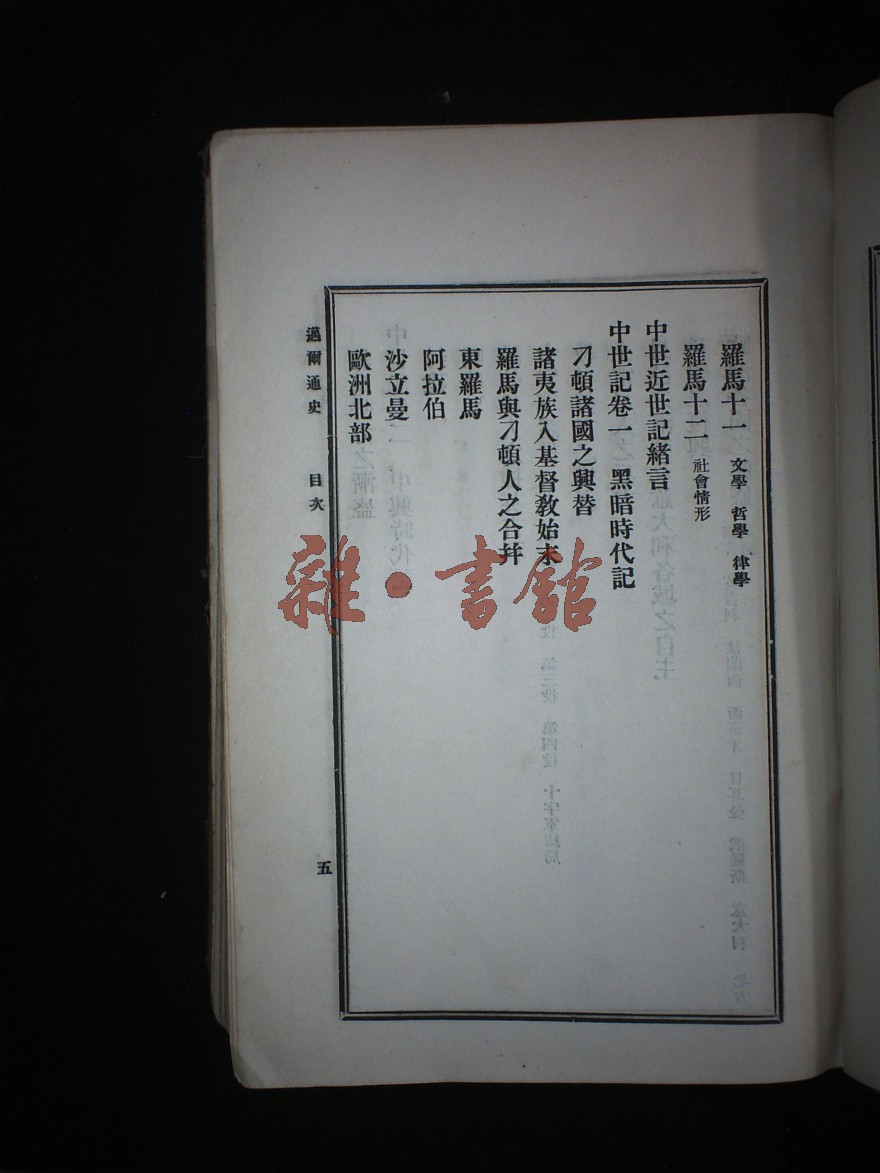 羅馬十一 文學 哲學 律學
羅馬十二 社會情形
中世近世記緒言
中世記卷一 黑暗時代記
刁頓諸國之興替
諸夷族入基督敎始末
羅馬與刁頓人之合幷
東羅馬
阿拉伯
沙立曼
歐洲北部
邁爾通史 目次
五
雜·書館